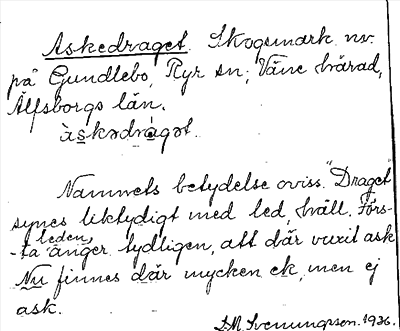 Askedraget. Skogsmark nv.
på Gundlebo, Ryr sn; Väne härad,
Älfsborgs län.
àskədrágət.
Namnets betydelse oviss. "Draget"
synes liktydigt med led, häll. Förs-
ta leden, anger tydligen, att där vuxit ask
Nu finnes där mycken ek, men ej
ask.
D.M. Svenungsson. 1936.